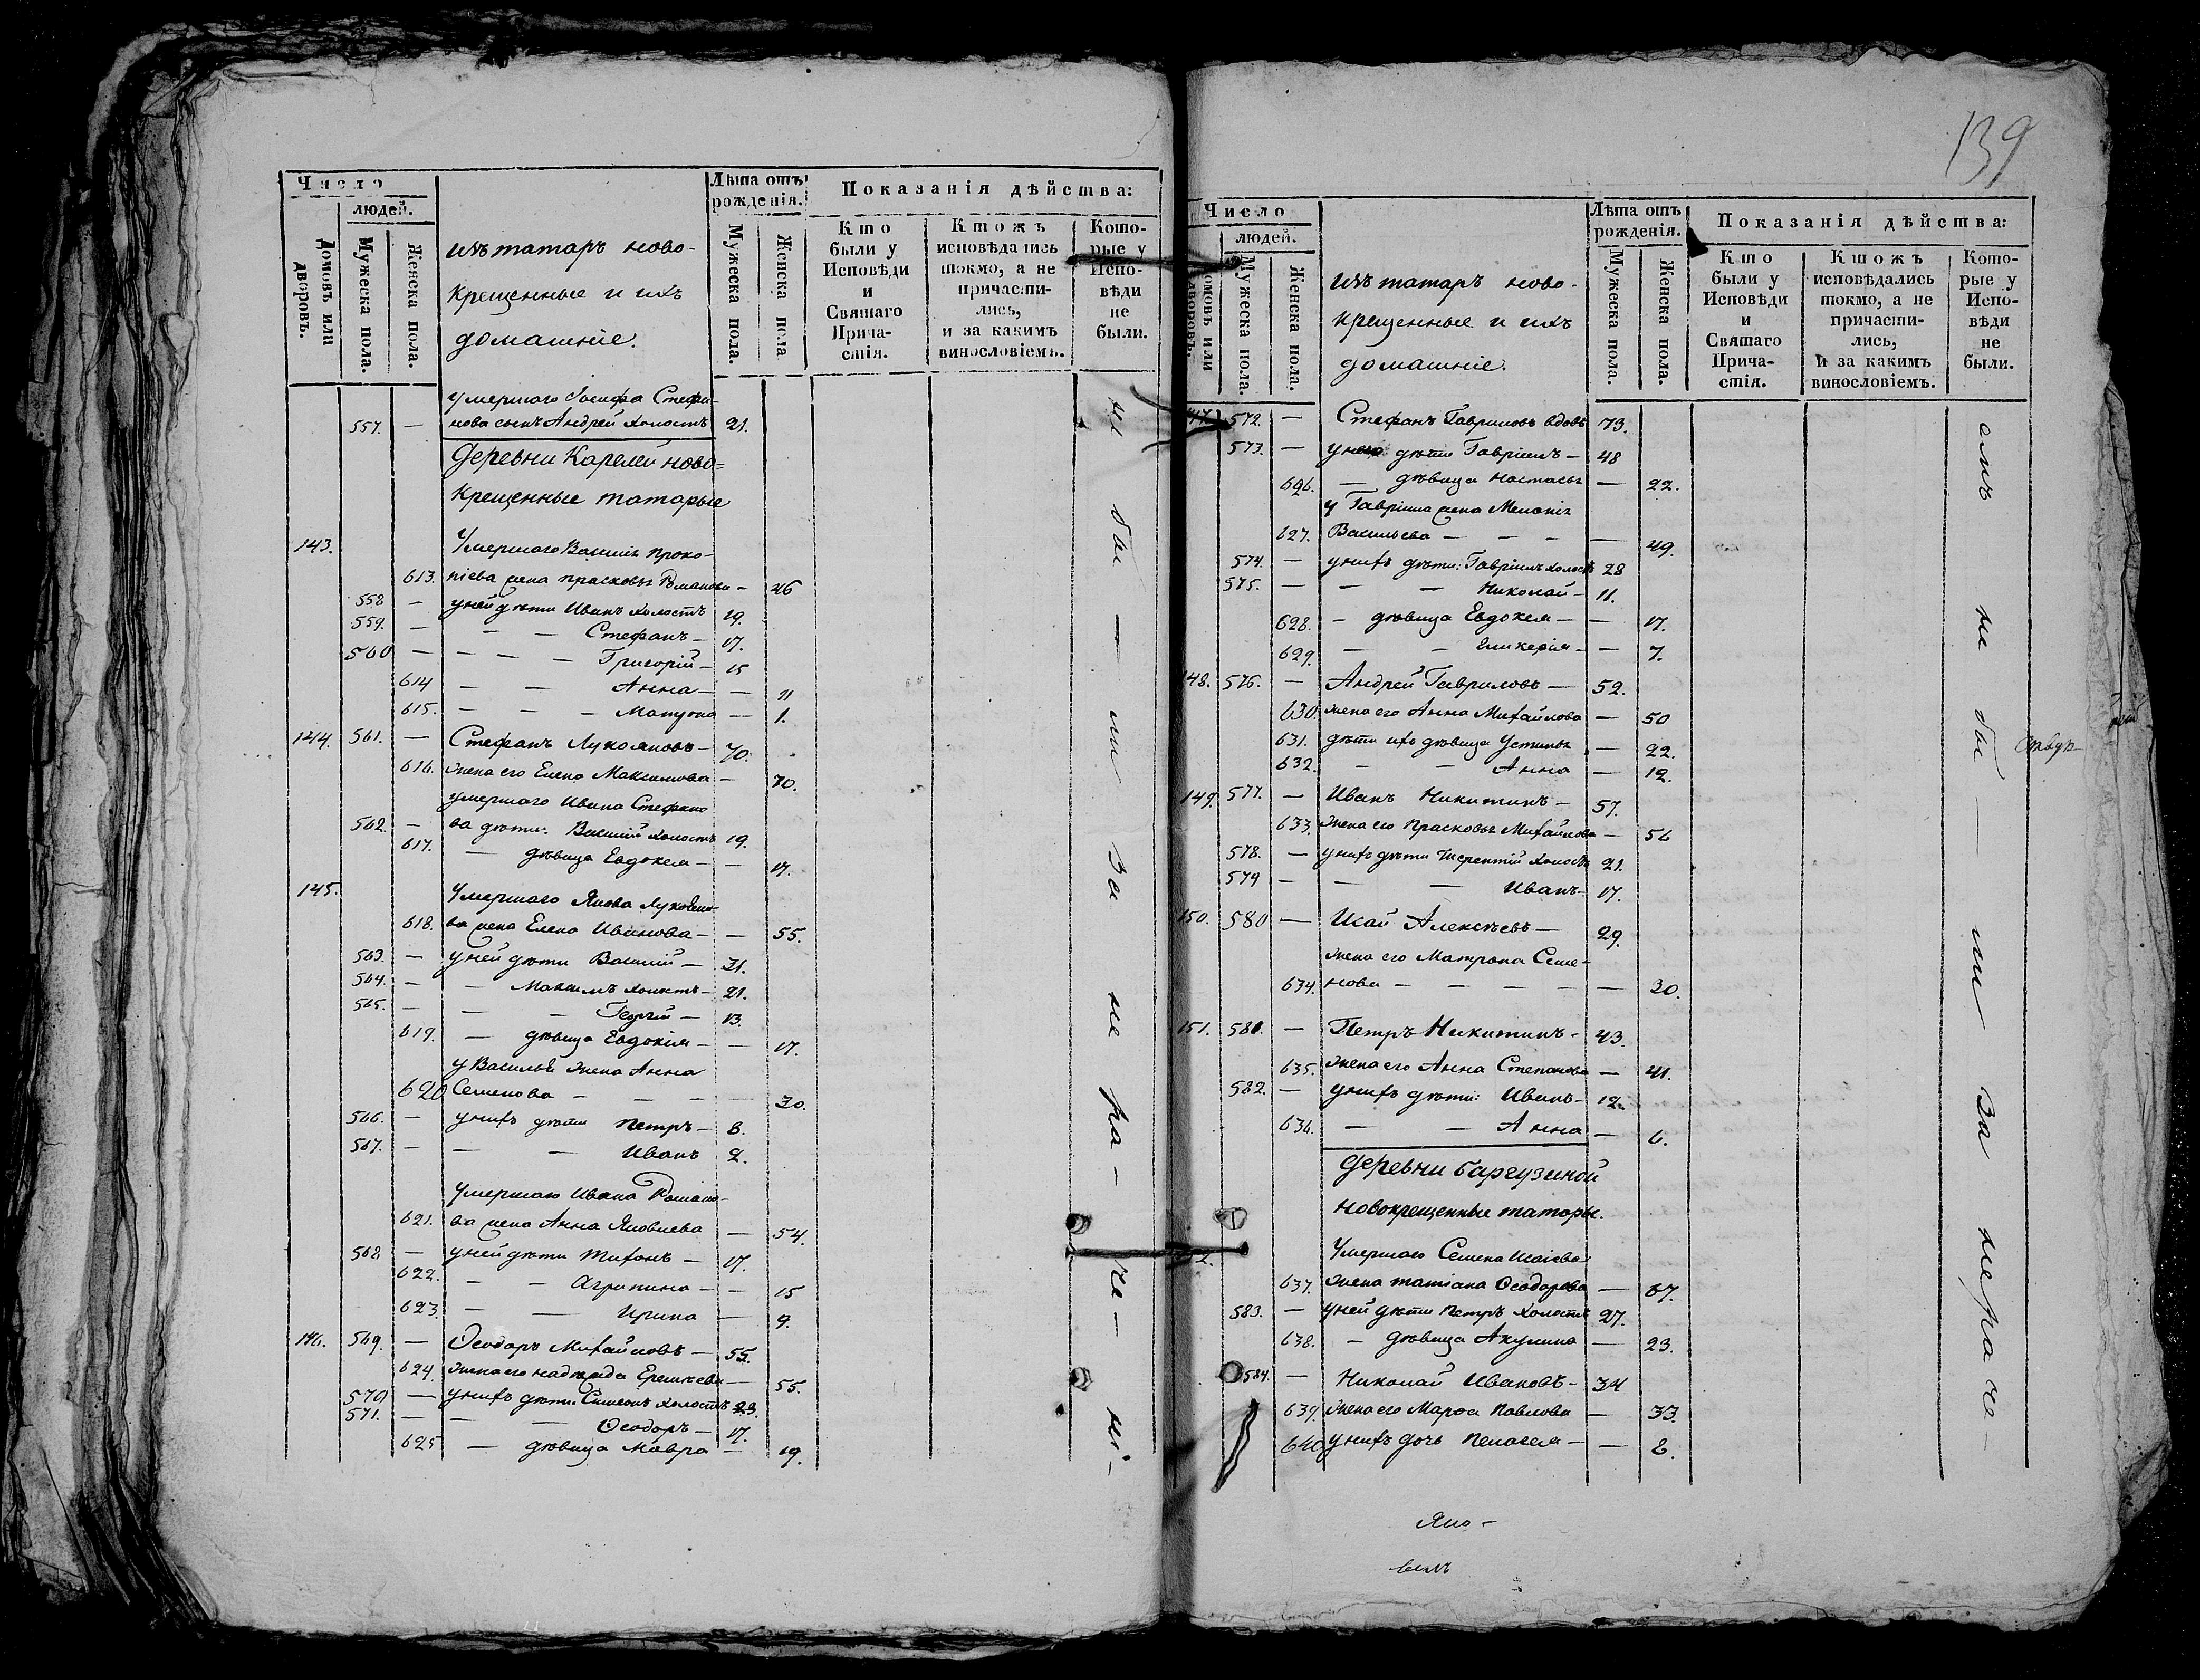 Число
людей.
Домовъ или дворовъ.
Мужеска пола.
Женска пола.
изъ татаръ ново-
крещенные и ихъ
домашніе.
Лѣта отъ
рожденія.
Мужеска пола.
Женска пола
Показанія дѣйства:
Кто
были у
Исповѣди
и
Святаго
Прича-
стія.
Ктожъ
исповѣдались
токмо, а не
причасти-
лись,
и за какимъ
винословіемъ.
Кото-
рые у
Испо-
вѣди
не
были.
умершаго Іосифа Стефа-
557. — нова сынъ Андрей холостъ 21.
Деревни Карелей ново=
крещенные татары
143. Умершаго Василія Проко-
613. піева жена Прасковья Романова — 46
558 — у ней дѣти Иванъ холостъ 19.
559. — — — Стефанъ — 17.
560 — — — — Григорій — 15
614 — — Анна — — 11
615. — — — Матрона — 1.
144. 561. — Стефанъ Лукояновъ — 70.
616. жена его Елена Максимова — 70.
умершаго Ивана Стефано
562. — ва дѣти: Василій холостъ 19.
617. — дѣвица Евдокея — — 17.
145. Умершаго Якова Лукояно-
618. ва жена Елена Иванова — — 55.
563. — у ней дѣти Василій — 31.
564. — — Максимъ холостъ — 21.
565. — — — Георгій — 13.
619. — дѣвица Евдокія — — 17.
у Василья жена Анна
620 Семенова — — — — 30.
566. — у нихъ дѣти Петръ — 8.
567. — — — Иванъ 2.
Умершаго Ивана Романо-
621. ва жена Анна Яковлева — 54.
568 — у ней дѣти Тихонъ — 17.
622. — — Агрипина — — 15
623. — — Ирина — 9.
146. 569. — Ѳеодоръ Михайловъ — 55.
624. жена его Надежда Еремѣева — 55.
570 — у нихъ дѣти Симеонъ холостъ 23.
571. — — — Ѳеодоръ — 17.
625 — дѣвица Мавра — 19.
не бы — ли за не ра — че — ні —
139
Число
людей.
Домовъ или дворовъ.
Мужеска пола.
Женска пола.
изъ татаръ ново-
крещенные и ихъ
домашніе.
Лѣта отъ
рожденія.
Мужеска пола.
Женска пола.
Показанія дѣйства:
Кто
были у
Исповѣди
и
Святаго
Прича-
стія.
Ктожъ
исповѣдались
токмо, а не
причасти-
лись,
и за какимъ
винословіемъ.
Кото-
рые у
Испо-
вѣди
не
были.
147. 572. — Стефанъ Гавриловъ вдовъ 73.
573. — у него дѣти Гавріилъ — 48
626. — дѣвица Настасья — 22.
у Гавріила жена Меланія
627. Васильева — — — — 49.
574. — у нихъ дѣти: Гавріилъ холостъ 28
575. — — — Николай — 11.
628. — дѣвица Евдокея — — 17.
629. — — Гликерія — — 7.
148. 576. — Андрей Гавриловъ — 52.
630. жена его Анна Михайлова — 50
631. дѣти ихъ дѣвица Устинья — 22.
632. — — Анна — 12.
149. 577. — Иванъ Никитинъ — 57.
633. жена его Прасковья Михайлова — 56
578. — у нихъ дѣти Терентій холостъ 21.
579 — — — Иванъ — 17.
150. 580 — Исай Алексѣевъ — 29.
жена его Матрона Семе-
634. нова — — — — — 30.
151. 581. — Петръ Никитинъ — 43.
635. жена его Анна Степанова — 41.
582. — у нихъ дѣти: Иванъ — 12.
636. — — Анна — 6.
Деревни Баргузиной
новокрещенные татары.
Умершаго Семена Исаіева
637. жена Татіана Ѳеодорова — 67.
583. — у ней дѣти Петръ холостъ 27.
638. — дѣвица Акулина — 23.
584. — Николай Ивановъ — 34
639. жена его Марѳа Павлова — 33.
640 у нихъ дочь Пелагея — — 8.
емъ не бы — ли за не ра че —